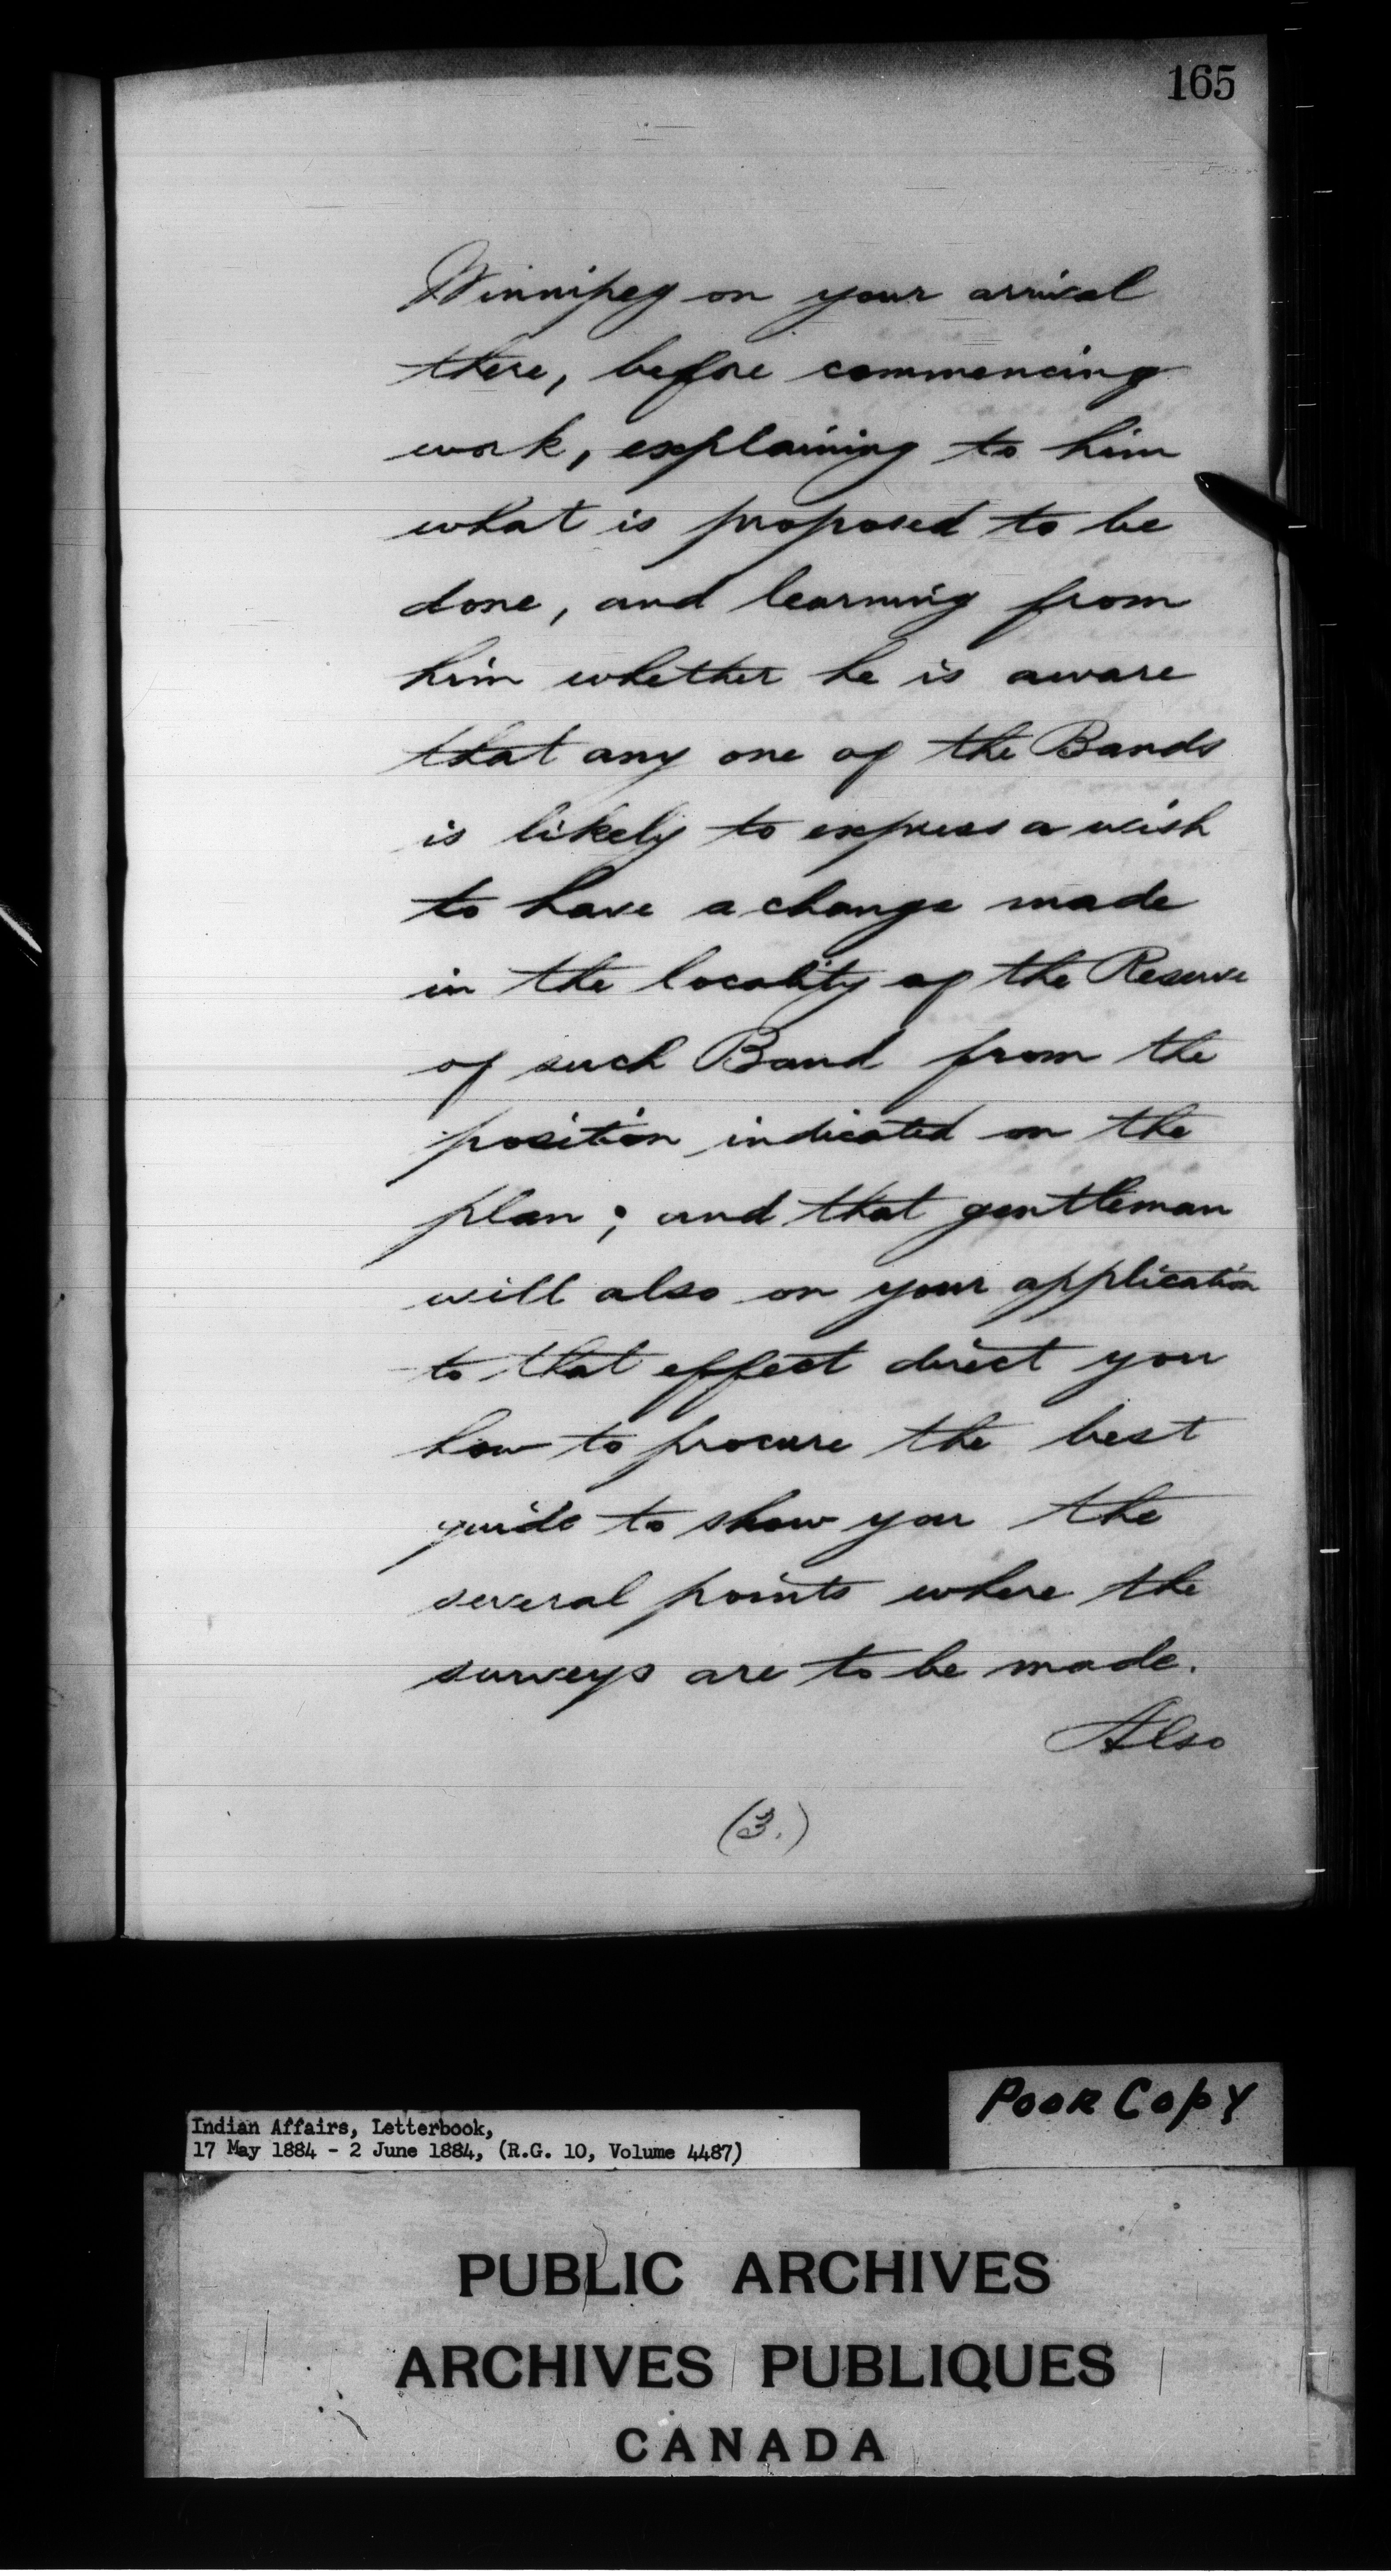 165
Winnipeg on your arrival
there, before commencing
work, explaining to him
what is proposed to be
done, and learning from
him whether he is aware
that any one of the Bands
is likely to express a wish
to have a change made
in the locality of the Reserve
of such Band from the
position indicated on the
plan; and that gentleman
will also on your application
to that effect direct you
how to procure the best
guide to show you the
several points where the
surveys are to be made.
Also
(3.)
POOR COPY
Indian Affairs, Letterbook,
17 May 1884 - 2 June 1884, (R.G. 10, Volume 4487)
PUBLIC ARCHIVES
ARCHIVES PUBLIQUES
CANADA